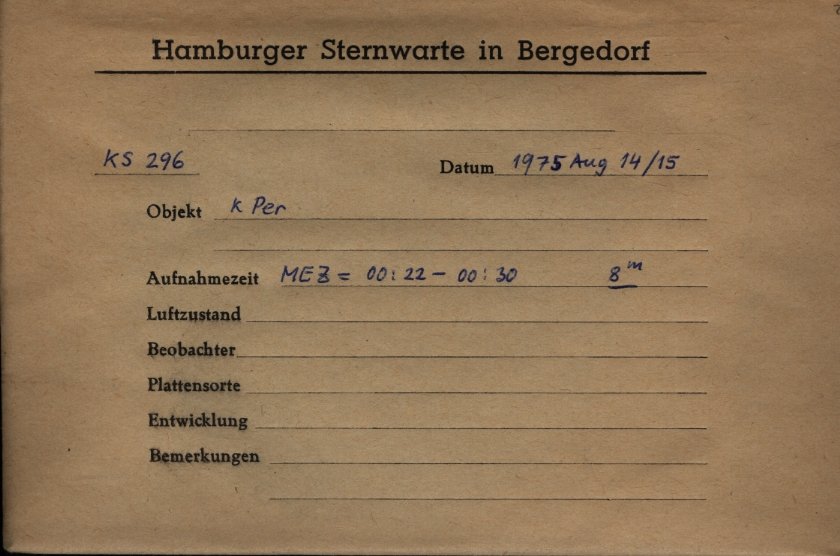 Hamburger Sternwarte in Bergedorf
KS 296 Datum 1975 Aug 14/15
Objekt K Per
Aufnahmezeit MEZ = 00:22 - 00:30 8ᵐ
Luftzustand
Beobachter
Plattensorte
Entwicklung
Bemerkungen